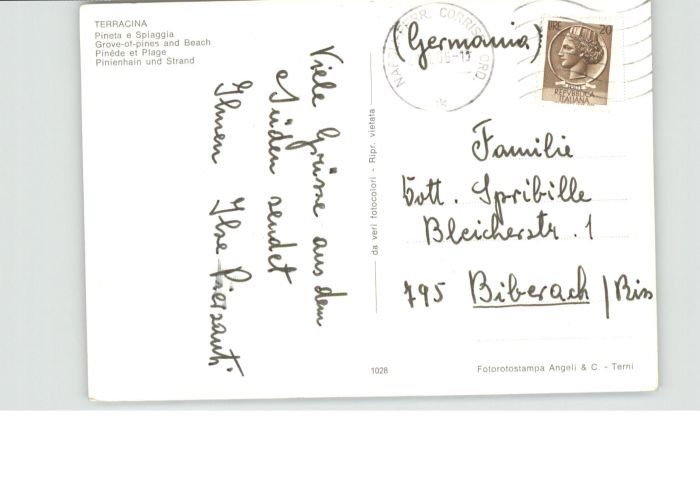 TERRACINA
Pineta e Spiaggia
Grove-of-pines and Beach
Pinède et Plage
Pinienhain und Strand
Viele Grüsse aus dem
Süden sendet
Ihnen Ilse Piersanti
da veri fotocolori - Ripr. vietata
1028
(Germania)
LIRE 20
POSTE
REPVBBLICA
ITALIANA
Familie
Dott. Spribille
Bleicherstr. 1
795 Biberach / Riss
Fotorotostampa Angeli & C. - Terni